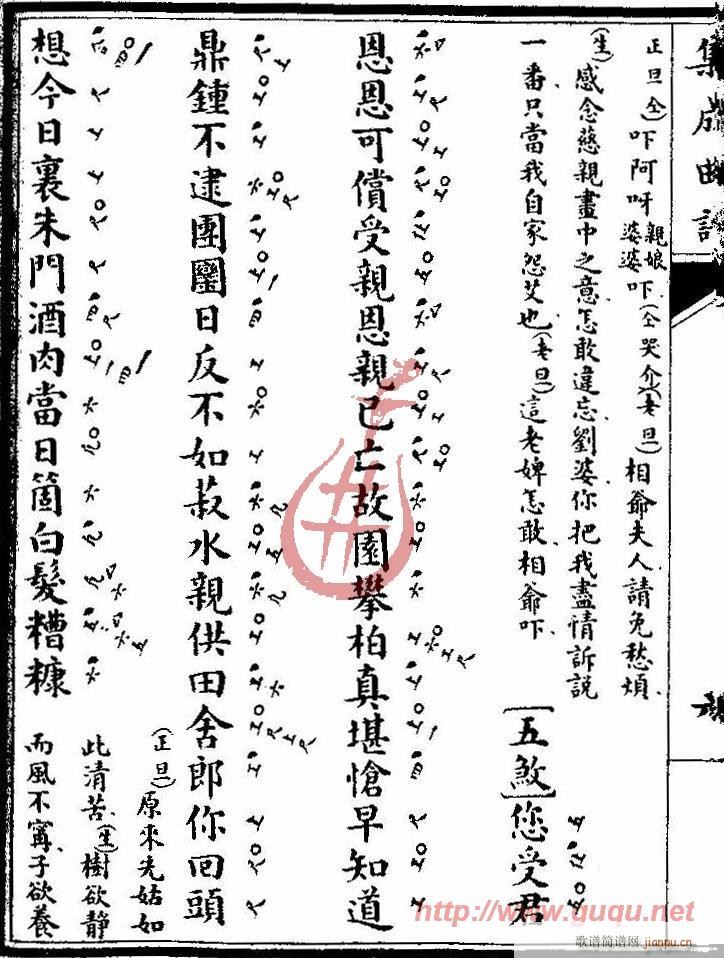 集成曲譜
正旦仝 吓阿呀親娘婆婆吓(仝哭介)(老旦)相爺夫人請免愁煩
(生)感念慈親畫中之意怎敢違忘劉婆你把我盡情訴說
一番只當我自家怨艾也(老旦)這老婢怎敢相爺吓
[五煞]您受君
恩恩可償受親恩親已亡故園攀柏真堪愴早知道
鼎鍾不逮團圞日反不如菽水親供田舍郎你回頭
(正旦)原來先姑如
想今日裏朱門酒肉當日箇白髮糟糠
此清苦(生)樹欲靜
而風不寗子欲養
http://www.guqu.net
歌谱简谱网
jianpu.cn